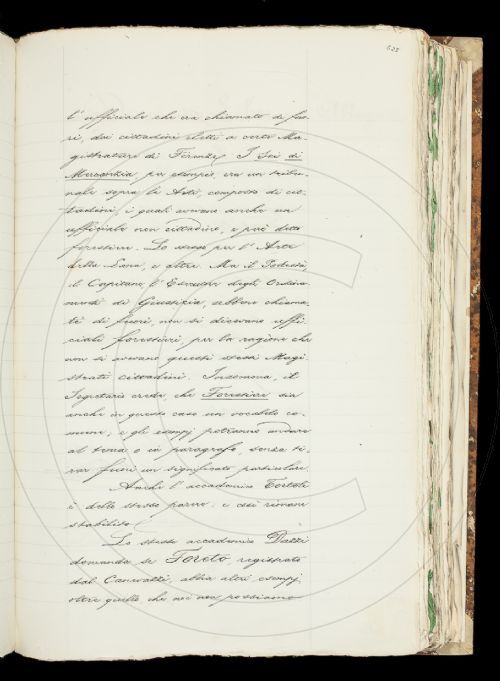 l'ufficiale che era chiamato di fuo-
ri, dai cittadini eletti a certe Ma-
gistrature di Firenze. I Sei di
Mercanzia per esempio, era un tribu-
nale sopra le Arti, composto di cit-
tadini, i quali avevano anche un
ufficiale non cittadino, e però detto
forestiere. Lo stesso per l'Arte
della Lana, e altre. Ma il Potestà,
il Capitano, l'Esecutore degli Ordina-
menti di Giustizia, sebben chiama-
ti di fuori, non si dicevano uffi-
ciali forestieri, per la ragione che
non si avevano questi stessi Magi-
strati cittadini. Insomma, il
Segretario crede, che Forestiere sia
anche in questo caso un vocabolo co-
mune; e gli esempj potranno andare
al tema o in paragrafo, senza ti-
rar fuori un significato particolare.
Anche l'accademico Tortoli
è dello stesso parere: e così rimane
stabilito.
Lo stesso accademico Dazzi
domanda se Foreto, registrato
dal Canevazzi, abbia altri esempj
oltre quello, che noi non possiamo